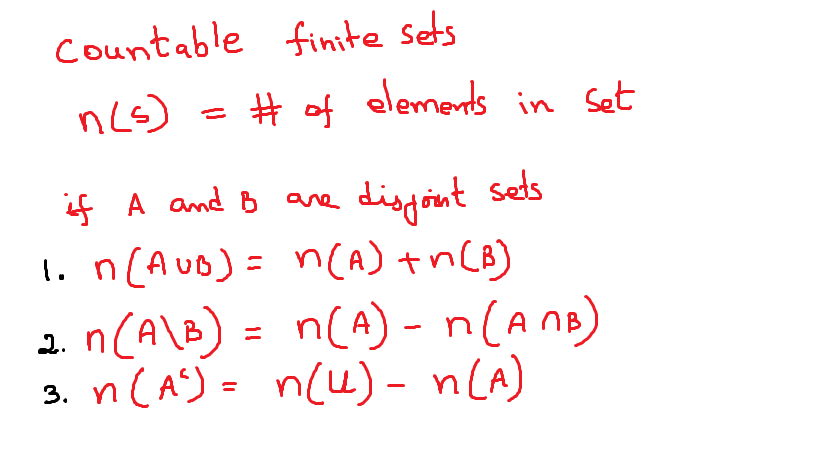 Countable finite sets
n(s) = # of elements in set
if A and B are disjoint sets
1. n(A∪B) = n(A) + n(B)
2. n(A\B) = n(A) - n(A∩B)
3. n(Aᶜ) = n(U) - n(A)